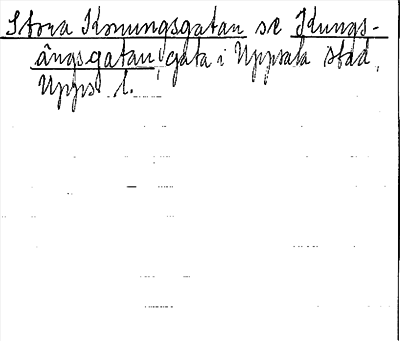 Stora Konungsgatan se Kungs-
ängsgatan, gata i Uppsala stad,
Upps. l.